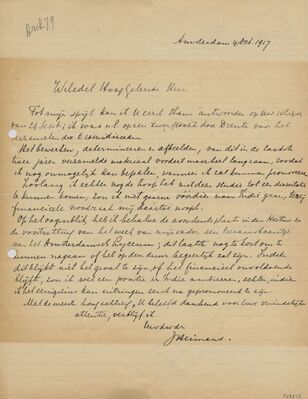 Arch 79
Amsterdam 4 Oct. 1917
Weledel Hooggeleerde Heer
Tot mijn spijt kan ik U eerst thans antwoorden op Uw schrijven
van 26 Sept; ik was n.l. op een zwerftocht door Drente voor het
verzamelen der Desmidiaceeën
Het bewerken, determineeren en afbeelden, van dit in de laatste
twee jaren verzamelde materiaal vordert maar heel langzaam, zoodat
ik nog onmogelijk kan bepalen, wanneer ik zal kunnen promoveeren
Zoolang ik echter nog de hoop heb met deze studie tot een dissertatie
te kunnen komen, zou ik niet gaarne voordien naar Indië gaan, tenzij
financieele noodzaak mij daartoe noopt.
Op het oogenblik heb ik behalve de assistentsplaats in den Hortus en
de voortzetting van het werk van mijn vader, een leeraarsbaantje
aan het Amsterdamsch Lyceum; dit laatste nog te kort om te
kunnen nagaan of het op den duur begeerlijk zal zijn. Indien
dit blijkt niet het geval te zijn, of het financieel onvoldoende
blijft, zou ik wel een positie in Indië ambieeren, echter, indien
ik het eenigszins kan uitzingen eerst na gepromoveerd te zijn.
Met de meeste hoogachting, U beleefd dankend voor Uwe vriendelijke
attentie, verblijf ik
Uw dw. dr
J Heimans.